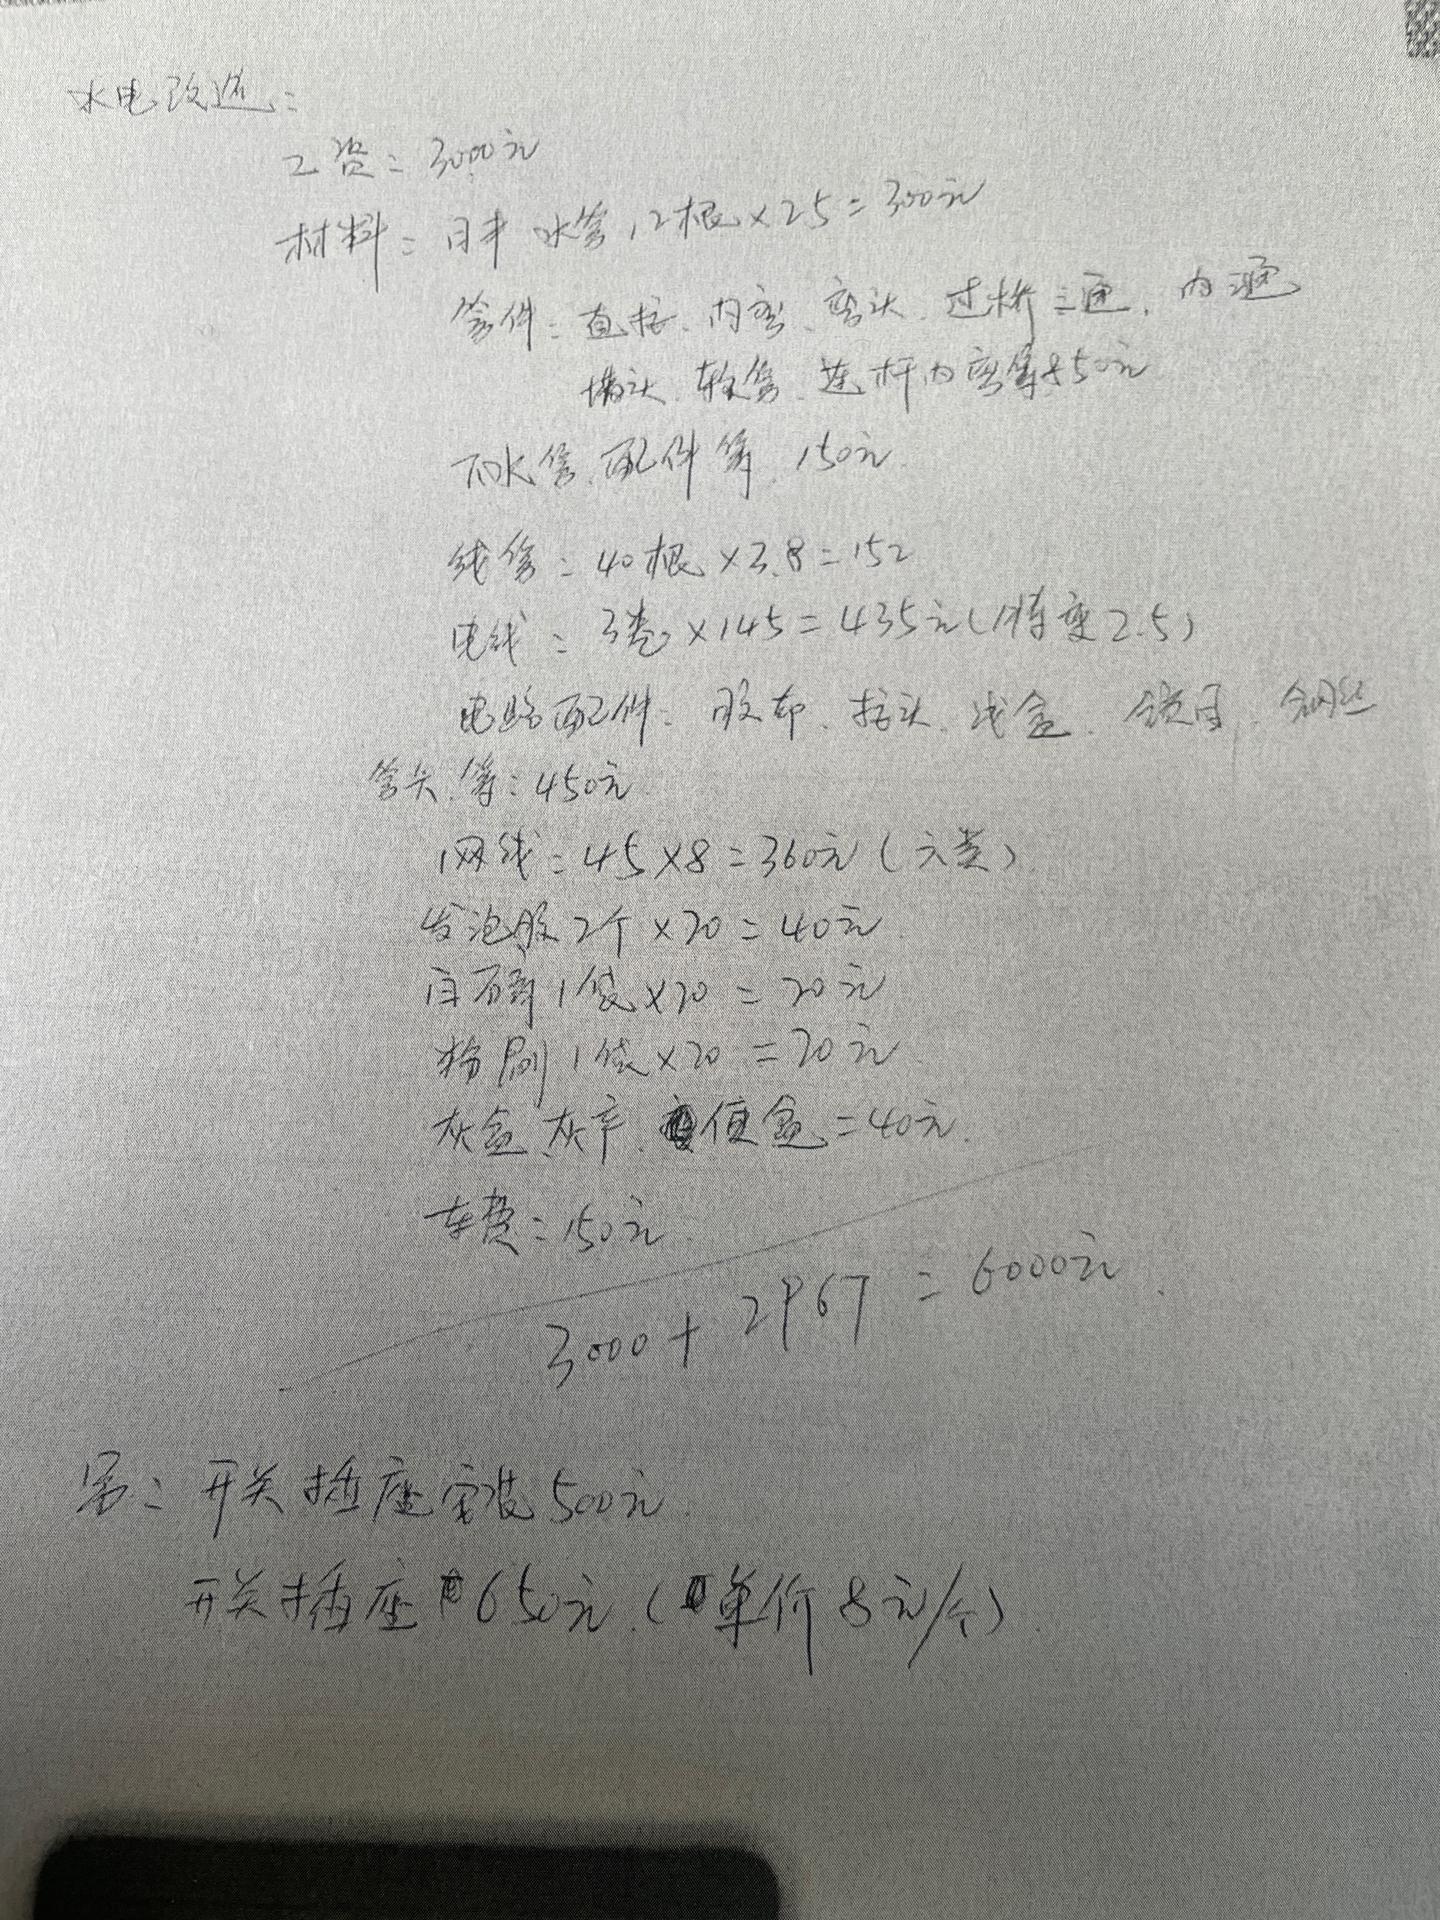 水电改造：
工资：3000元
材料：日丰水管12根×25=300元
管件：直接、内弯、弯头、过桥三通、内通
堵头、软管、连杆内弯等850元
下水管、配件等、150元
线管：40根×3.8=152
电线：3卷×145=435元(2.5)
电路配件：胶布、接头、线盒、锁母、钢丝
管卡、等：450元
网线：45×8=360元(六类)
发泡胶2个×20=40元
白水泥1袋×20=20元
粉刷1袋×20=20元
灰盒、灰、值盒=40元
车费=150元
3000+2967=6000元
另：开关插座安装500元
开关插座650元(单价8元/个)